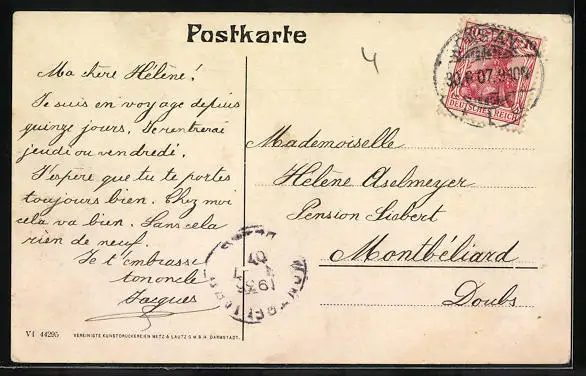 Postkarte
4
Ma chère Hélène!
Je suis en voyage depuis
quinze jours. Je rentrerai
jeudi ou vendredi.
J'espère que tu te portes
toujours bien. Chez moi
cela va bien. Sans cela
rien de neuf.
Je t'embrasse
ton oncle
Jacques
Mademoiselle
Hélène Aselmeyer
Pension Siebert
Montbéliard
Doubs
10
30.6.07.9-10N
DEUTSCHES REICH
VI 44295
VEREINIGTE KUNSTDRUCKEREIEN METZ & LAUTZ G.M.B.H. DARMSTADT.